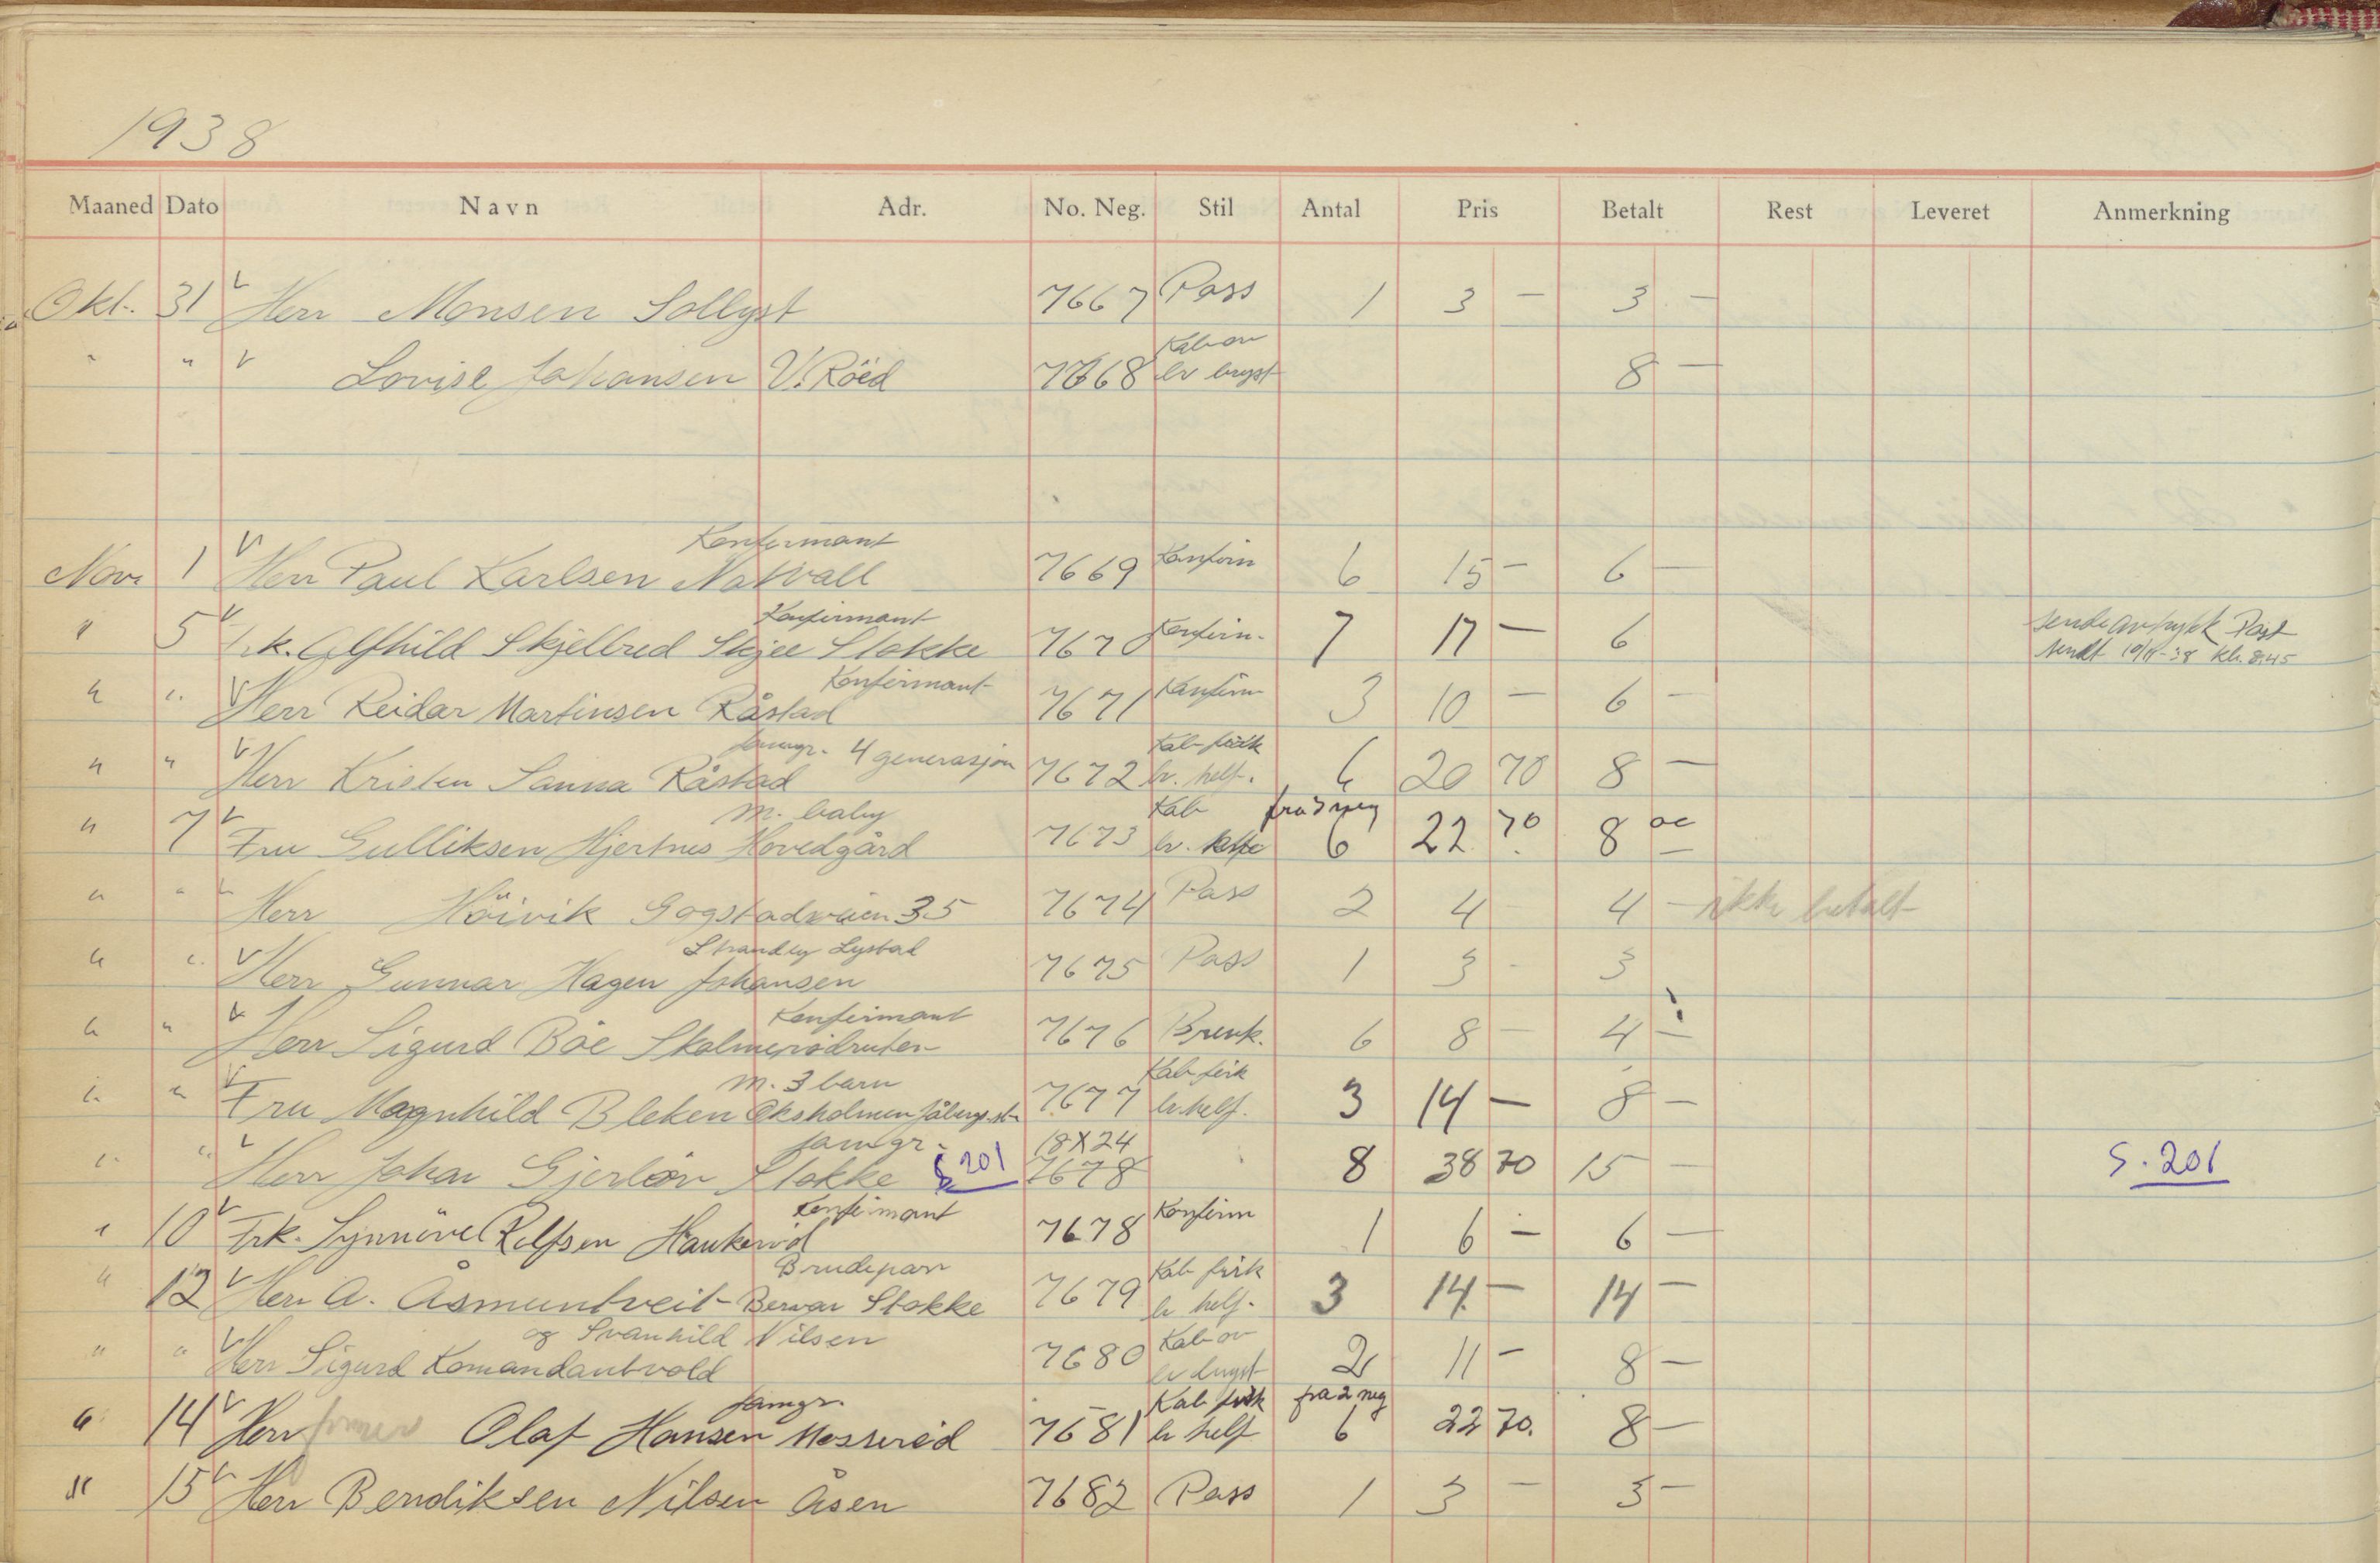 1938
Maaned Dato Navn Adr. No. Neg. Stil Antal Pris Betalt Rest Leveret Anmerkning
Okt. 31 Herr Monsen Sollyst 7667 Pass 1 3 — 3 —
Kab ov
" " Lovise Johansen V. Röed 7668 br bryst 8 —
Konfirmant
Nov. 1 Herr Paul Karlsen Natvall 7669 Konfirm 6 15 — 6 —
Konfirmant
" 5 Frk. Alfhild Skjelbred Skjee Stokke 7670 Konfirm. 7 17 — 6 sende avtrykk Post
sendt 10/11-38 kl. 8.45
Konfirmant
" " Herr Reidar Martinsen Råstad 7671 Konfirm 3 10 — 6 —
famgr. 4 generasjon Kab firk
" " Herr Kristen Sanna Råstad 7672 br. helf. 6 20 70 8 —
m. baby Kab fra 3 neg
" 7 Fru Gulliksen Hjertnes Hovedgård 7673 br. 6 22 70 8 oo
" " Herr Höivik Gogstadveien 35 7674 Pass 2 4 — 4 — ikke betalt
Strandly Lystad
" " Herr Gunnar Hagen Johansen 7675 Pass 1 3 - 3
Konfirmant
" " Herr Sigurd Böe Skolmerödruten 7676 Brevk. 6 8 — 4 —
m. 3 barn Kab firk
" " Fru Magnhild Bleken Oksholmen Jåbergs.st. 7677 br helf. 3 14 — 8 —
famgr. 18X24
" " Herr Johan Gjerløv Stokke S 201 7678 8 38 70 15 — S. 201
Konfirmant
" 10 Frk. Synnöve Rolfsen Haukeröd 7678 Konfirm 1 6 — 6 —
Brudepar Kab firk
" 12 Herr A. Åsmuntveit Bervar Stokke 7679 br helf. 3 14 — 14 —
og Svanhild Nilsen Kab ov
" " Herr Sigurd Komandantvold 7680 br bryst 2 11 — 8 —
famgr. Kab firk fra 2 neg
" 14 Herr Olaf Hansen Messeröd 7681 br helf 6 22 70. 8 —
" 15 Herr Bendiksen Nilsen Åsen 7682 Pass 1 3 — 3 —